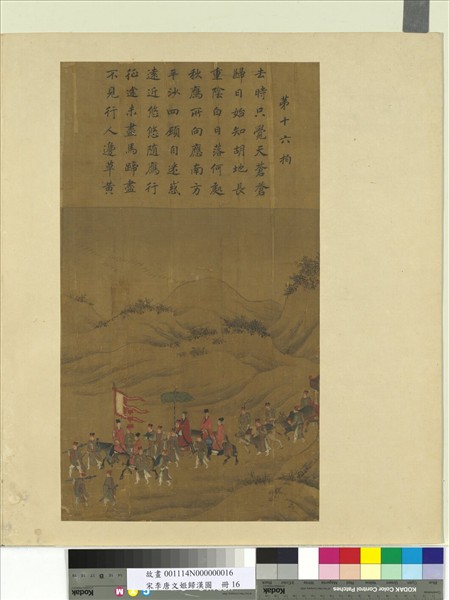 第十六拍
去時只覺天蒼蒼
歸日始知胡地長
重陰白日落何處
秋鴈所向應南方
平沙四顧自迷惑
遠近悠悠隨鴈行
征途未盡馬蹄盡
不見行人邊草黃
故畫 001114N000000016
宋李唐文姬歸漢圖 冊 16
Kodak
KODAK Color Control Patches